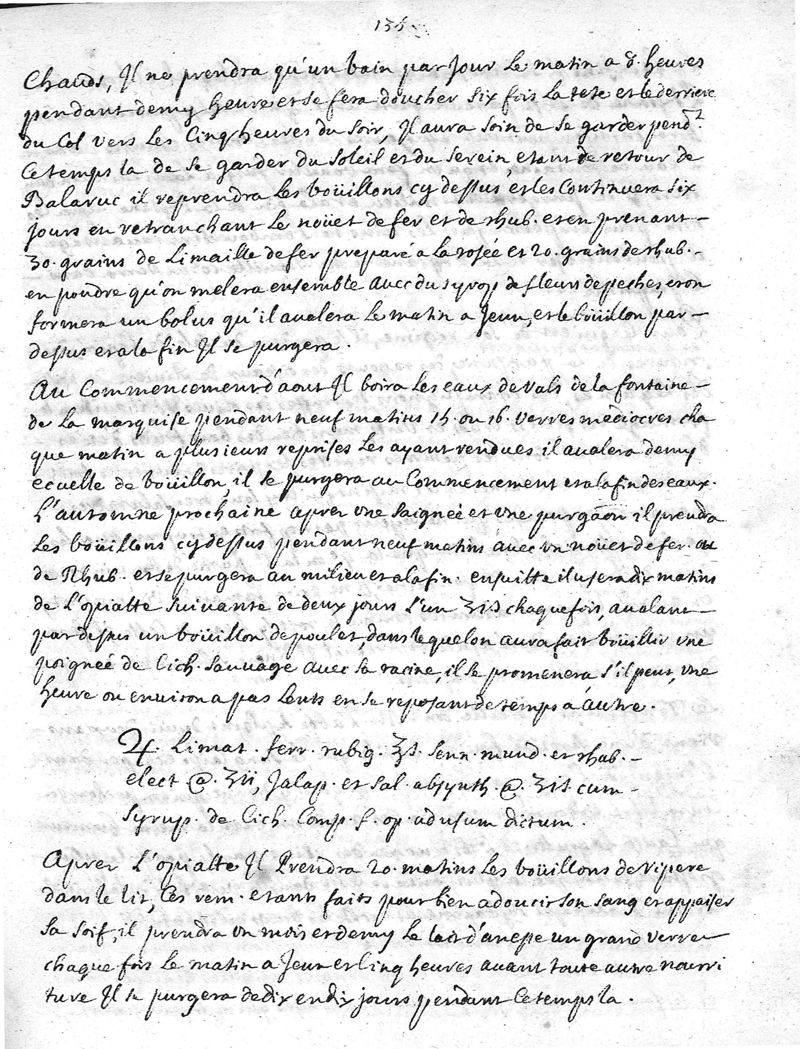 135
Chauds, Il ne prendra qu'un bain par Jour Le matin a 8. heures
pendant demy heure et se fera doucher six fois La tete et le derriere
du Col vers Les Cinq heures du soir, Il aura soin de se garder pend.t
Ce temps la de se garder du soleil et du serein etant de retour de
Balaruc il reprendra Les boüillons cy dessus et les Continuera six
jours en retranchant Le noüet de fer et de rhub. et en prenant –
30. grains de Limaille de fer preparé a La rosée et 20. grains de rhub. –
en poudre qu'on melera ensemble avec du syrop de fleurs de peches, et on
formera un bolus qu'il avalera Le matin a Jeun, et le boüillon par –
dessus et a la fin Il se purgera.
Au Commencement d'aout Il boira Les eaux de Vals de la fontaine –
de La marquise pendant neuf matins 15 ou 16. verres mediocres cha
que matin a plusieurs reprises Les ayant rendues il avalera demy
ecuelle de boüillon, il se purgera au Commencement et a la fin des eaux.
L'automne prochaine aprez une saignée et une purgaõn il prendra
Les boüillons cy dessus pendant neuf matins avec un noüet de fer. et
de Rhub. et se purgera au milieu et a la fin. ensuitte il usera dix matins
de L'opiatte suivante de deux jours L'un ʒiß chaque fois, avalant –
par dessus un boüillon de poulet, dans lequel on aura fait boüillir une
poigneé de Cich. sauvage avec sa racine, il se promenera s'il peut, une
heure ou environ a pas Lents en se reposant de temps à autre.
♃. Limat. ferr. rubig. ℥ß. senn. mund. et rhab. –
elect @. ʒii, Jalap. et sal. absynth. @. ʒiß cum –
syrup. de Cich. Comp. f. op. ad usum dictum.
Aprez L'opiatte Il Prendra 20. matins Les boüillons de vipere
dans le lit, Ces rem. etants faits pour bien adoucir son sang et appaiser
sa soif, il prendra un mois et demy Le lait d'anesse un grand verre
chaque fois Le matin a Jeun et Cinq heures avant toute autre nourri
ture Il se purgera de dix en dix jours pendant Ce temps la.